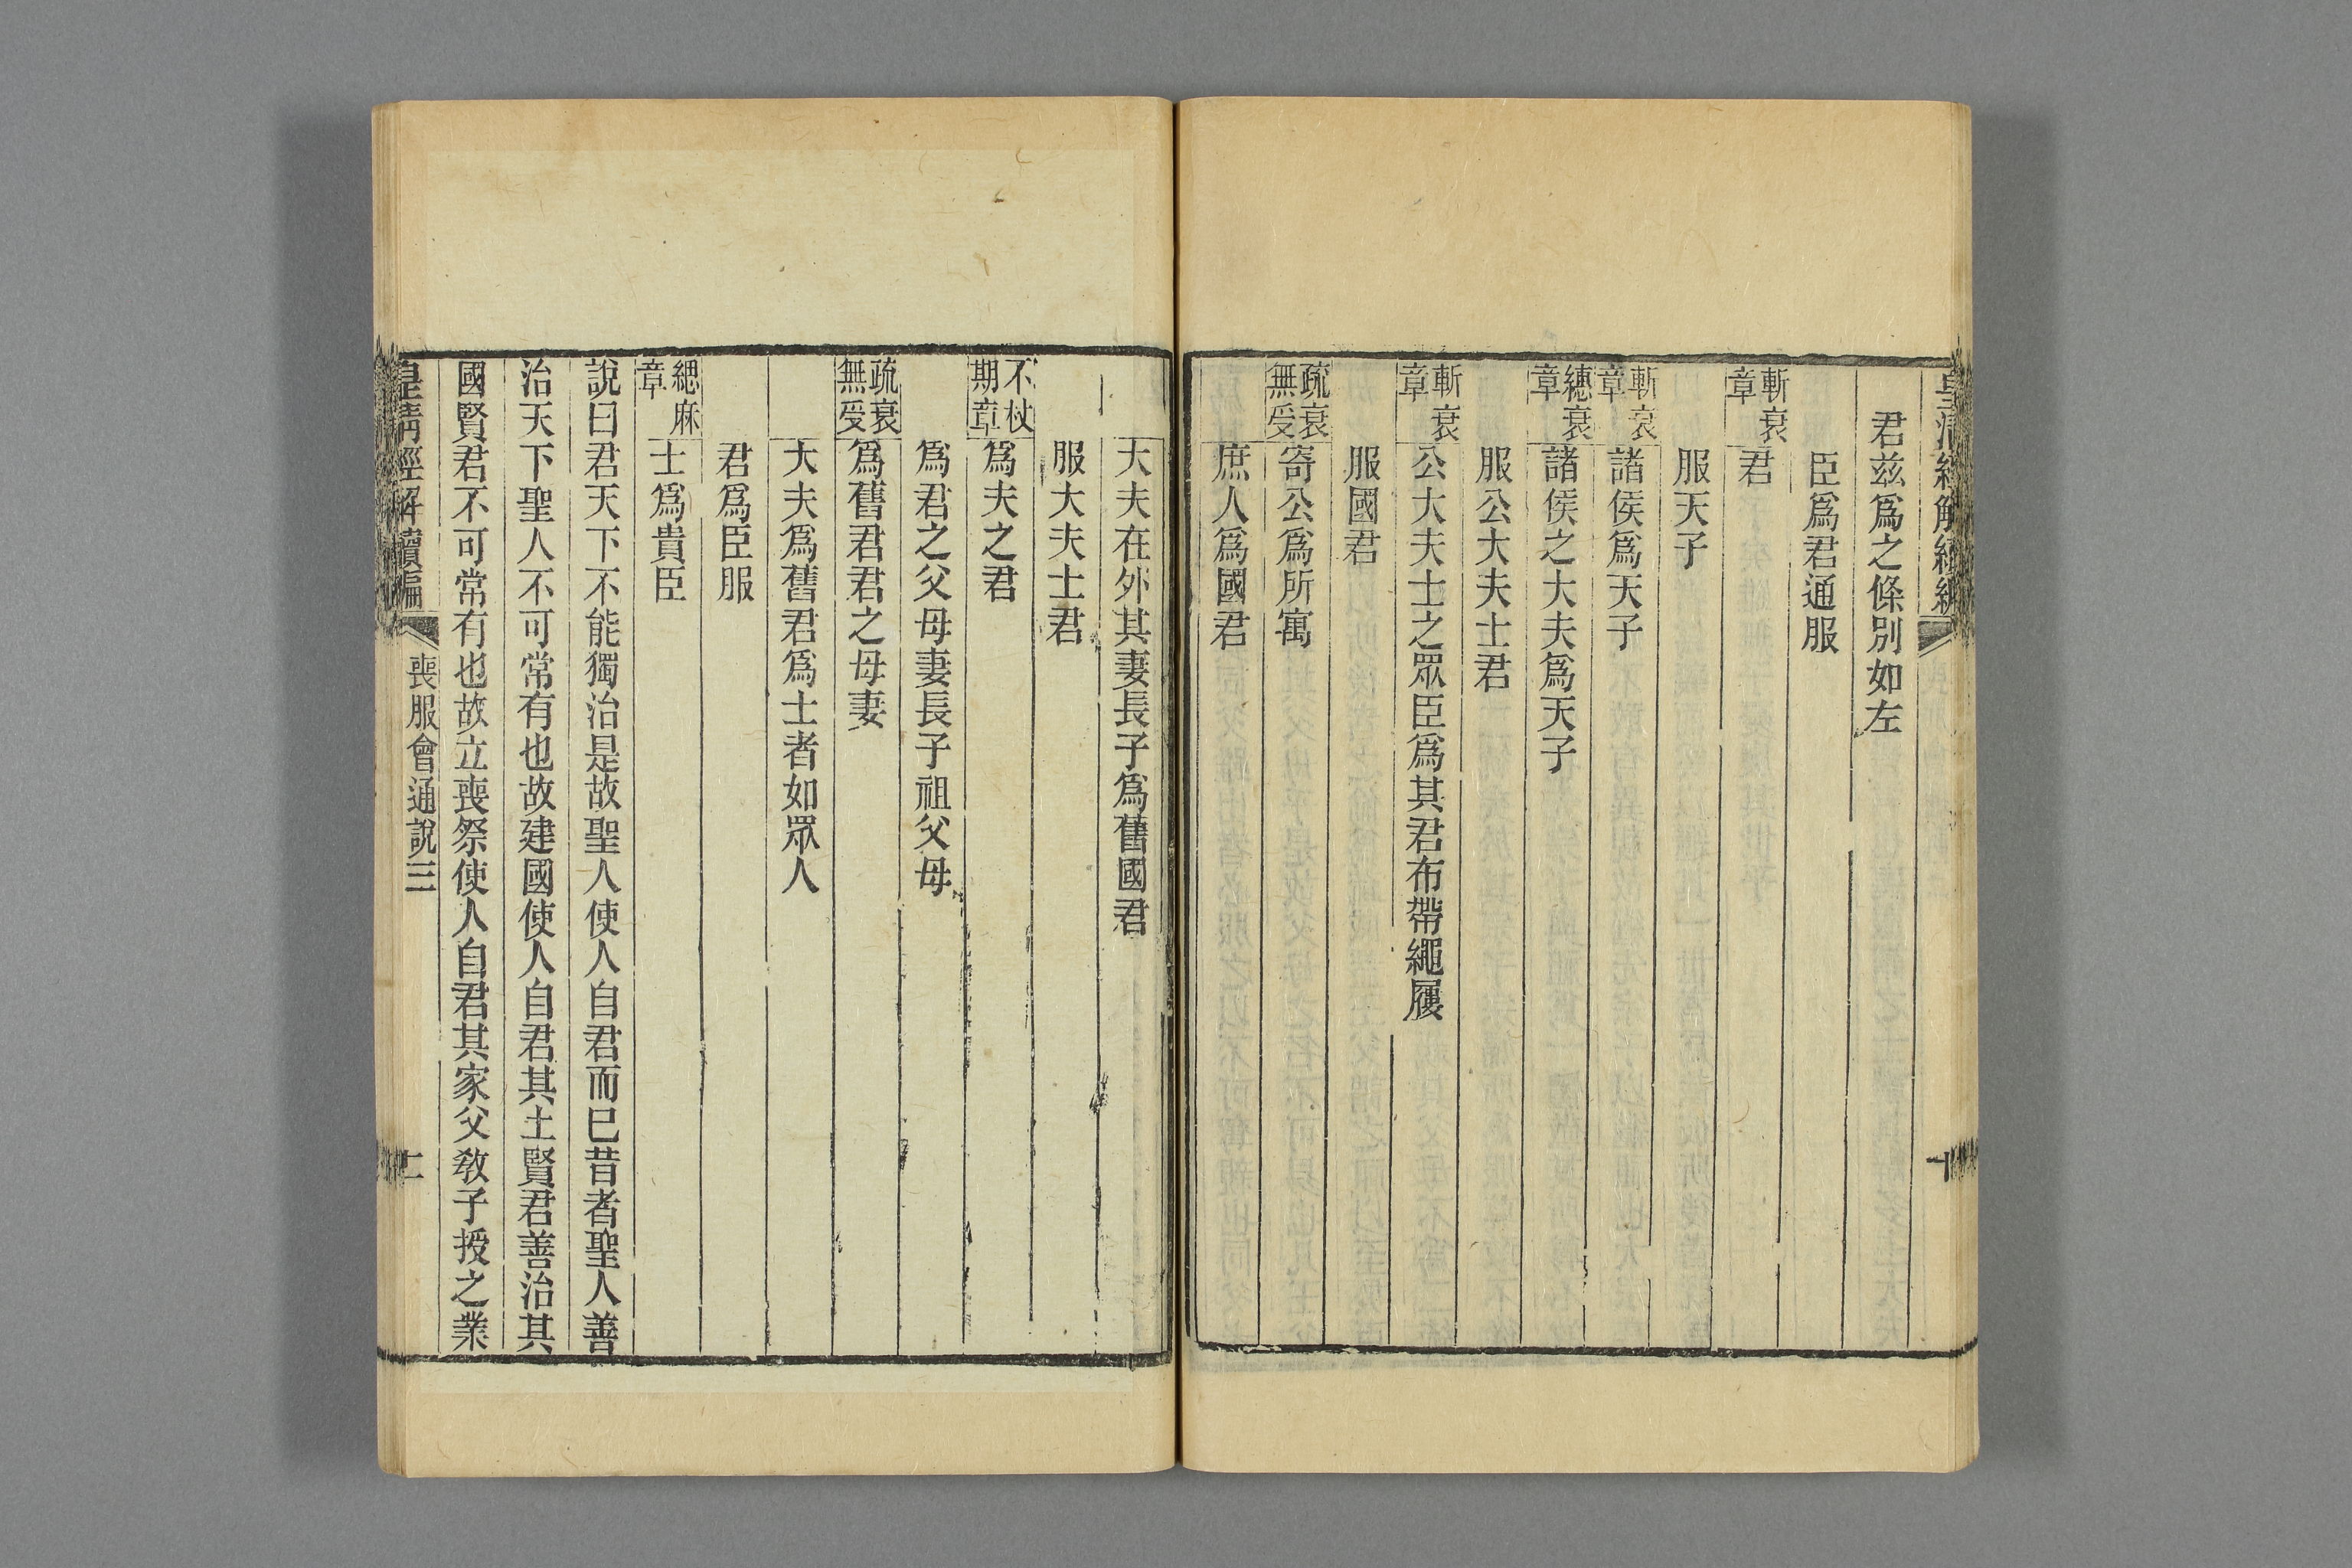 皇清經解續編
君玆爲之條別如左
臣爲君通服
斬衰章 君
服天子
斬衰章 諸侯爲天子
繐衰章 諸侯之大夫爲天子
服公大夫士君
斬衰章 公大夫士之眾臣爲其君布帶繩屨
服國君
疏衰無受 寄公爲所寓
庶人爲國君
大夫在外其妻長子爲舊國君
服大夫士君
不杖期章 爲夫之君
爲君之父母妻長子祖父母
疏衰無受 爲舊君君之母妻
大夫爲舊君爲士者如眾人
君爲臣服
緦麻章 士爲貴臣
說曰君天下不能獨治是故聖人使人自君而已昔者聖人善
治天下聖人不可常有也故建國使人自君其土賢君善治其
國賢君不可常有也故立喪祭使人自君其家父敎子授之業
皇淸經解續編 喪服會通說三